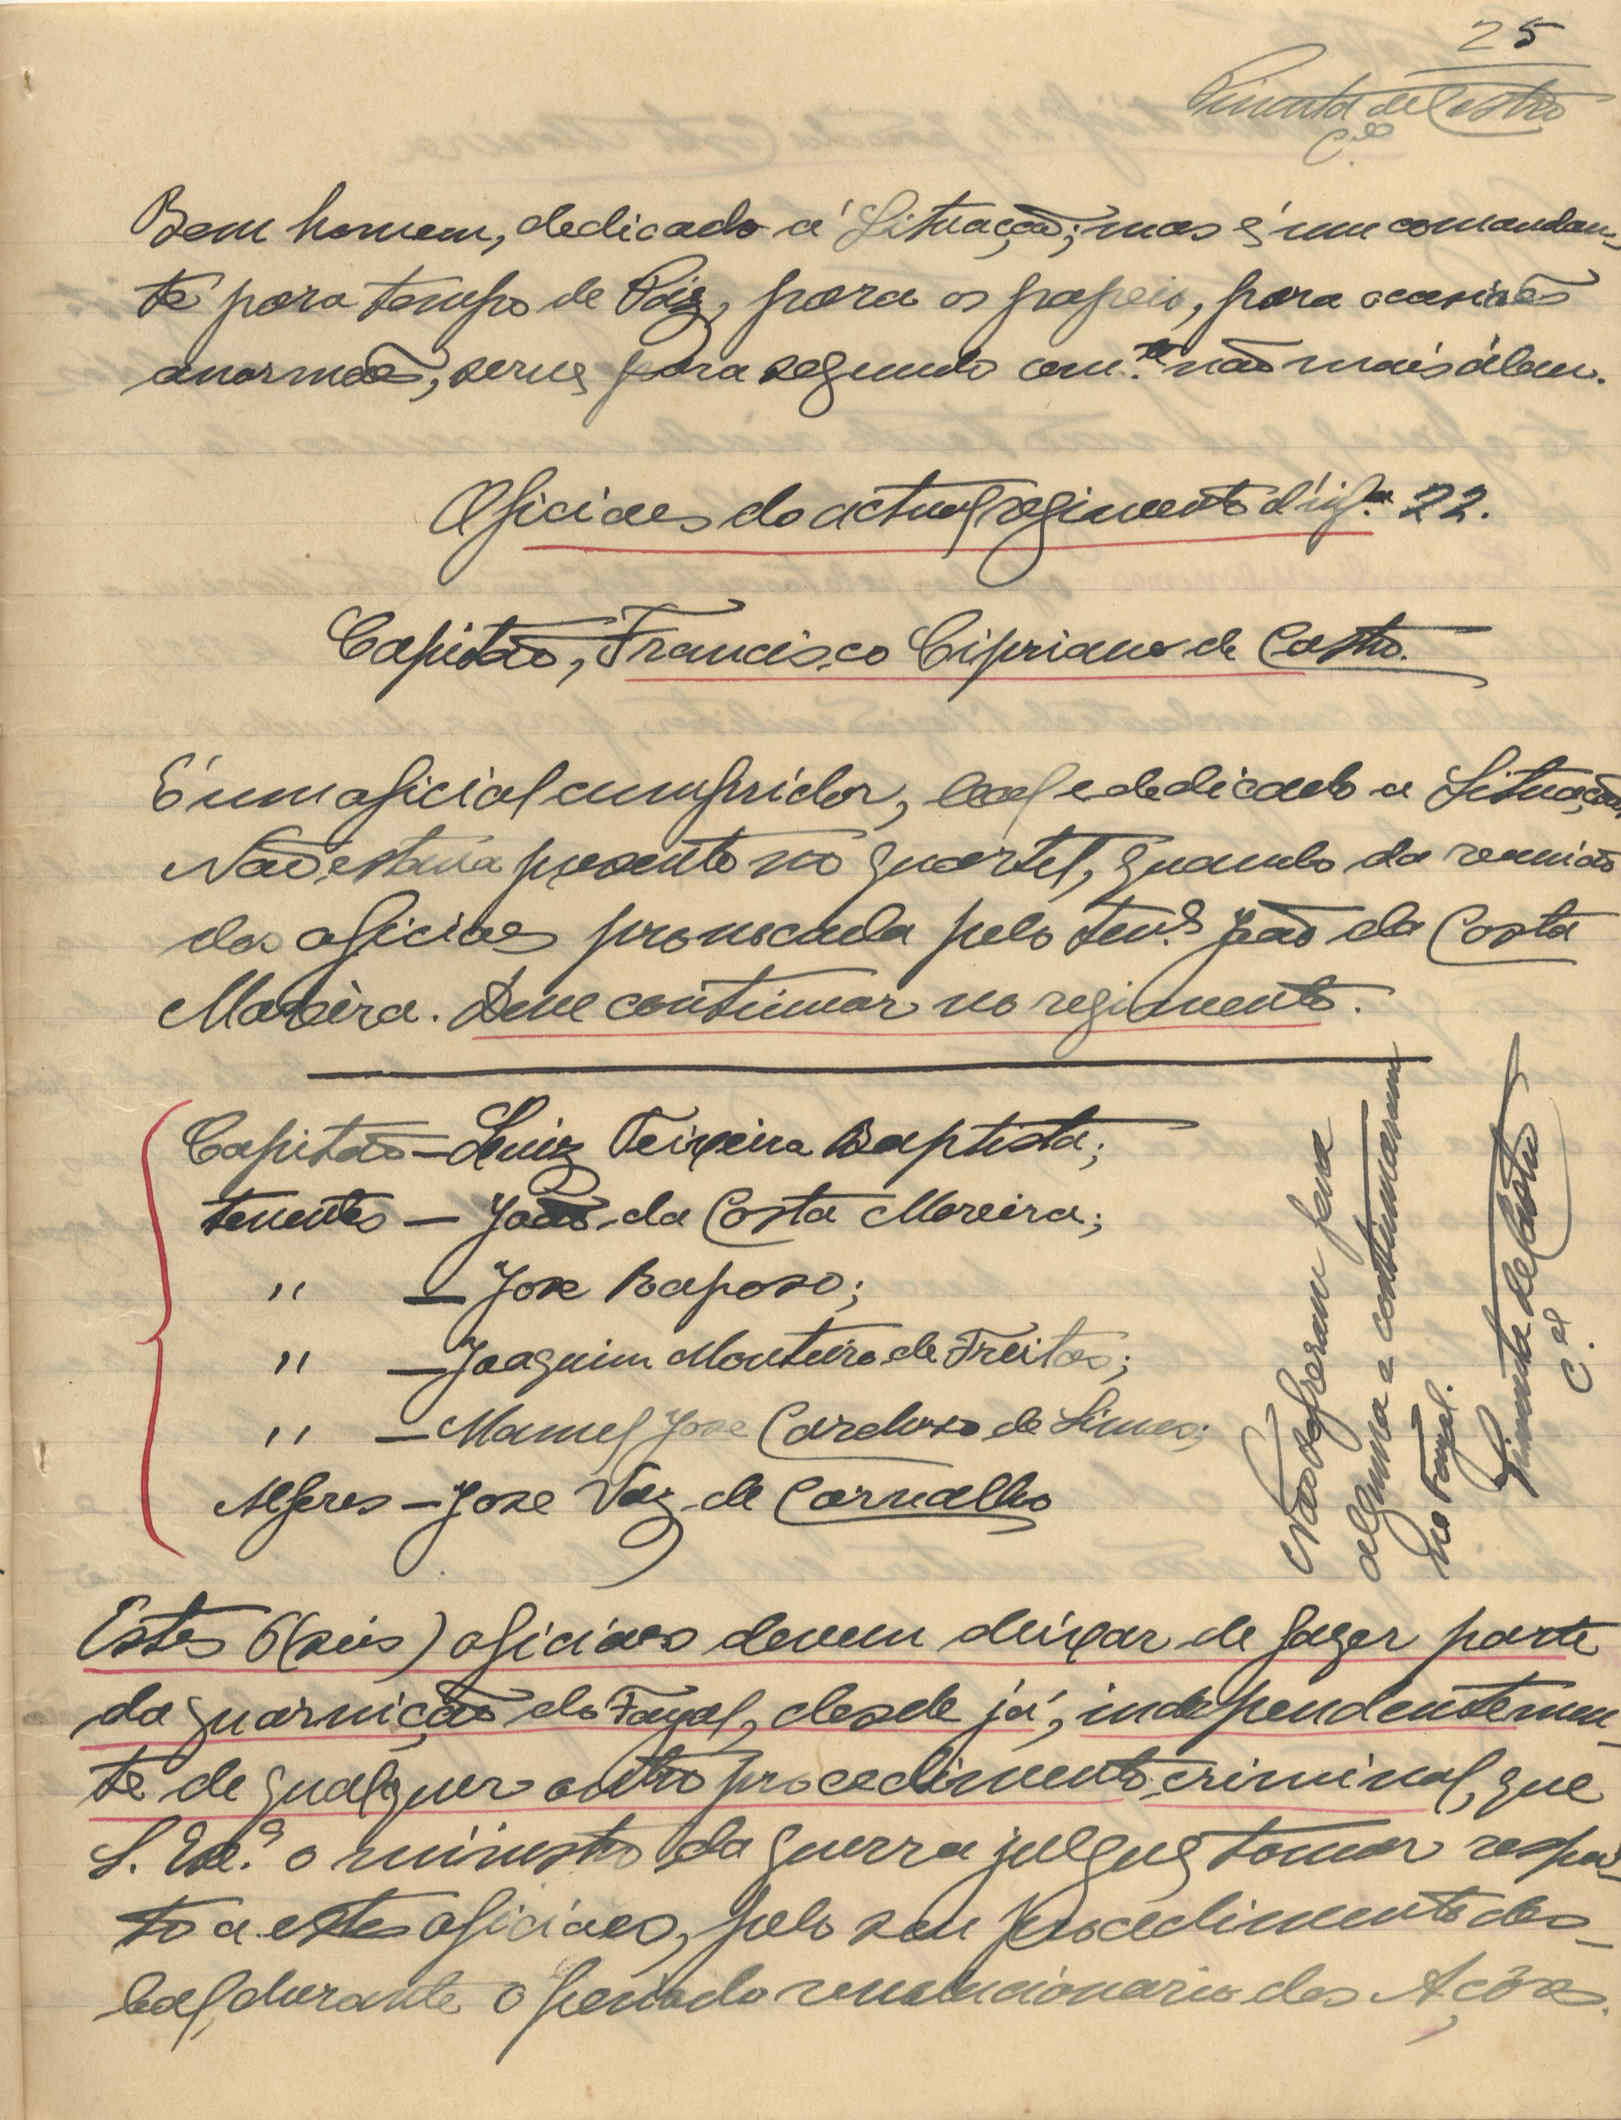 25
Pimenta de Castro
C.el
Bom homem, dedicado á Situação; mas é um comandan-
te para tempo de Páz, para os papeis, para ocasiões
anormaes, serve para segundo com.te não mais álem.
Oficiaes do actual regimento d'inf.ª 22.
Capitão, Francisco Cipriano de Castro.
É um oficial cumpridor, leal e dedicado a Situação,
Não estava presente no quartel, quando da reunião
dos oficiaes provocada pelo ten.e João da Costa
Moreira. Deve continuar no regimento.
Capitão – Luiz Teixeira Baptista;
tenentes – João da Costa Moreira;
" – Jose Raposo;
" – Joaquim Monteiro de Freitas;
" – Manuel Jose Cardoso de Simas;
Alferes – Jose Vaz de Carvalho
Não sofreram pena
alguma e continuaram
no Fayal.
Pimenta de Castro
C.el
Estes 6 (seis) oficiaes devem deixar de fazer parte
da guarnição do Fayal, desde já, independentemen-
te de qualquer outro procedimento criminal, que
S. Ex.ª o ministro da guerra julgue tomar respei-
to a estes oficiaes, pelo seu procedimento des-
leal, durante o periodo revolucionario dos Açôres.